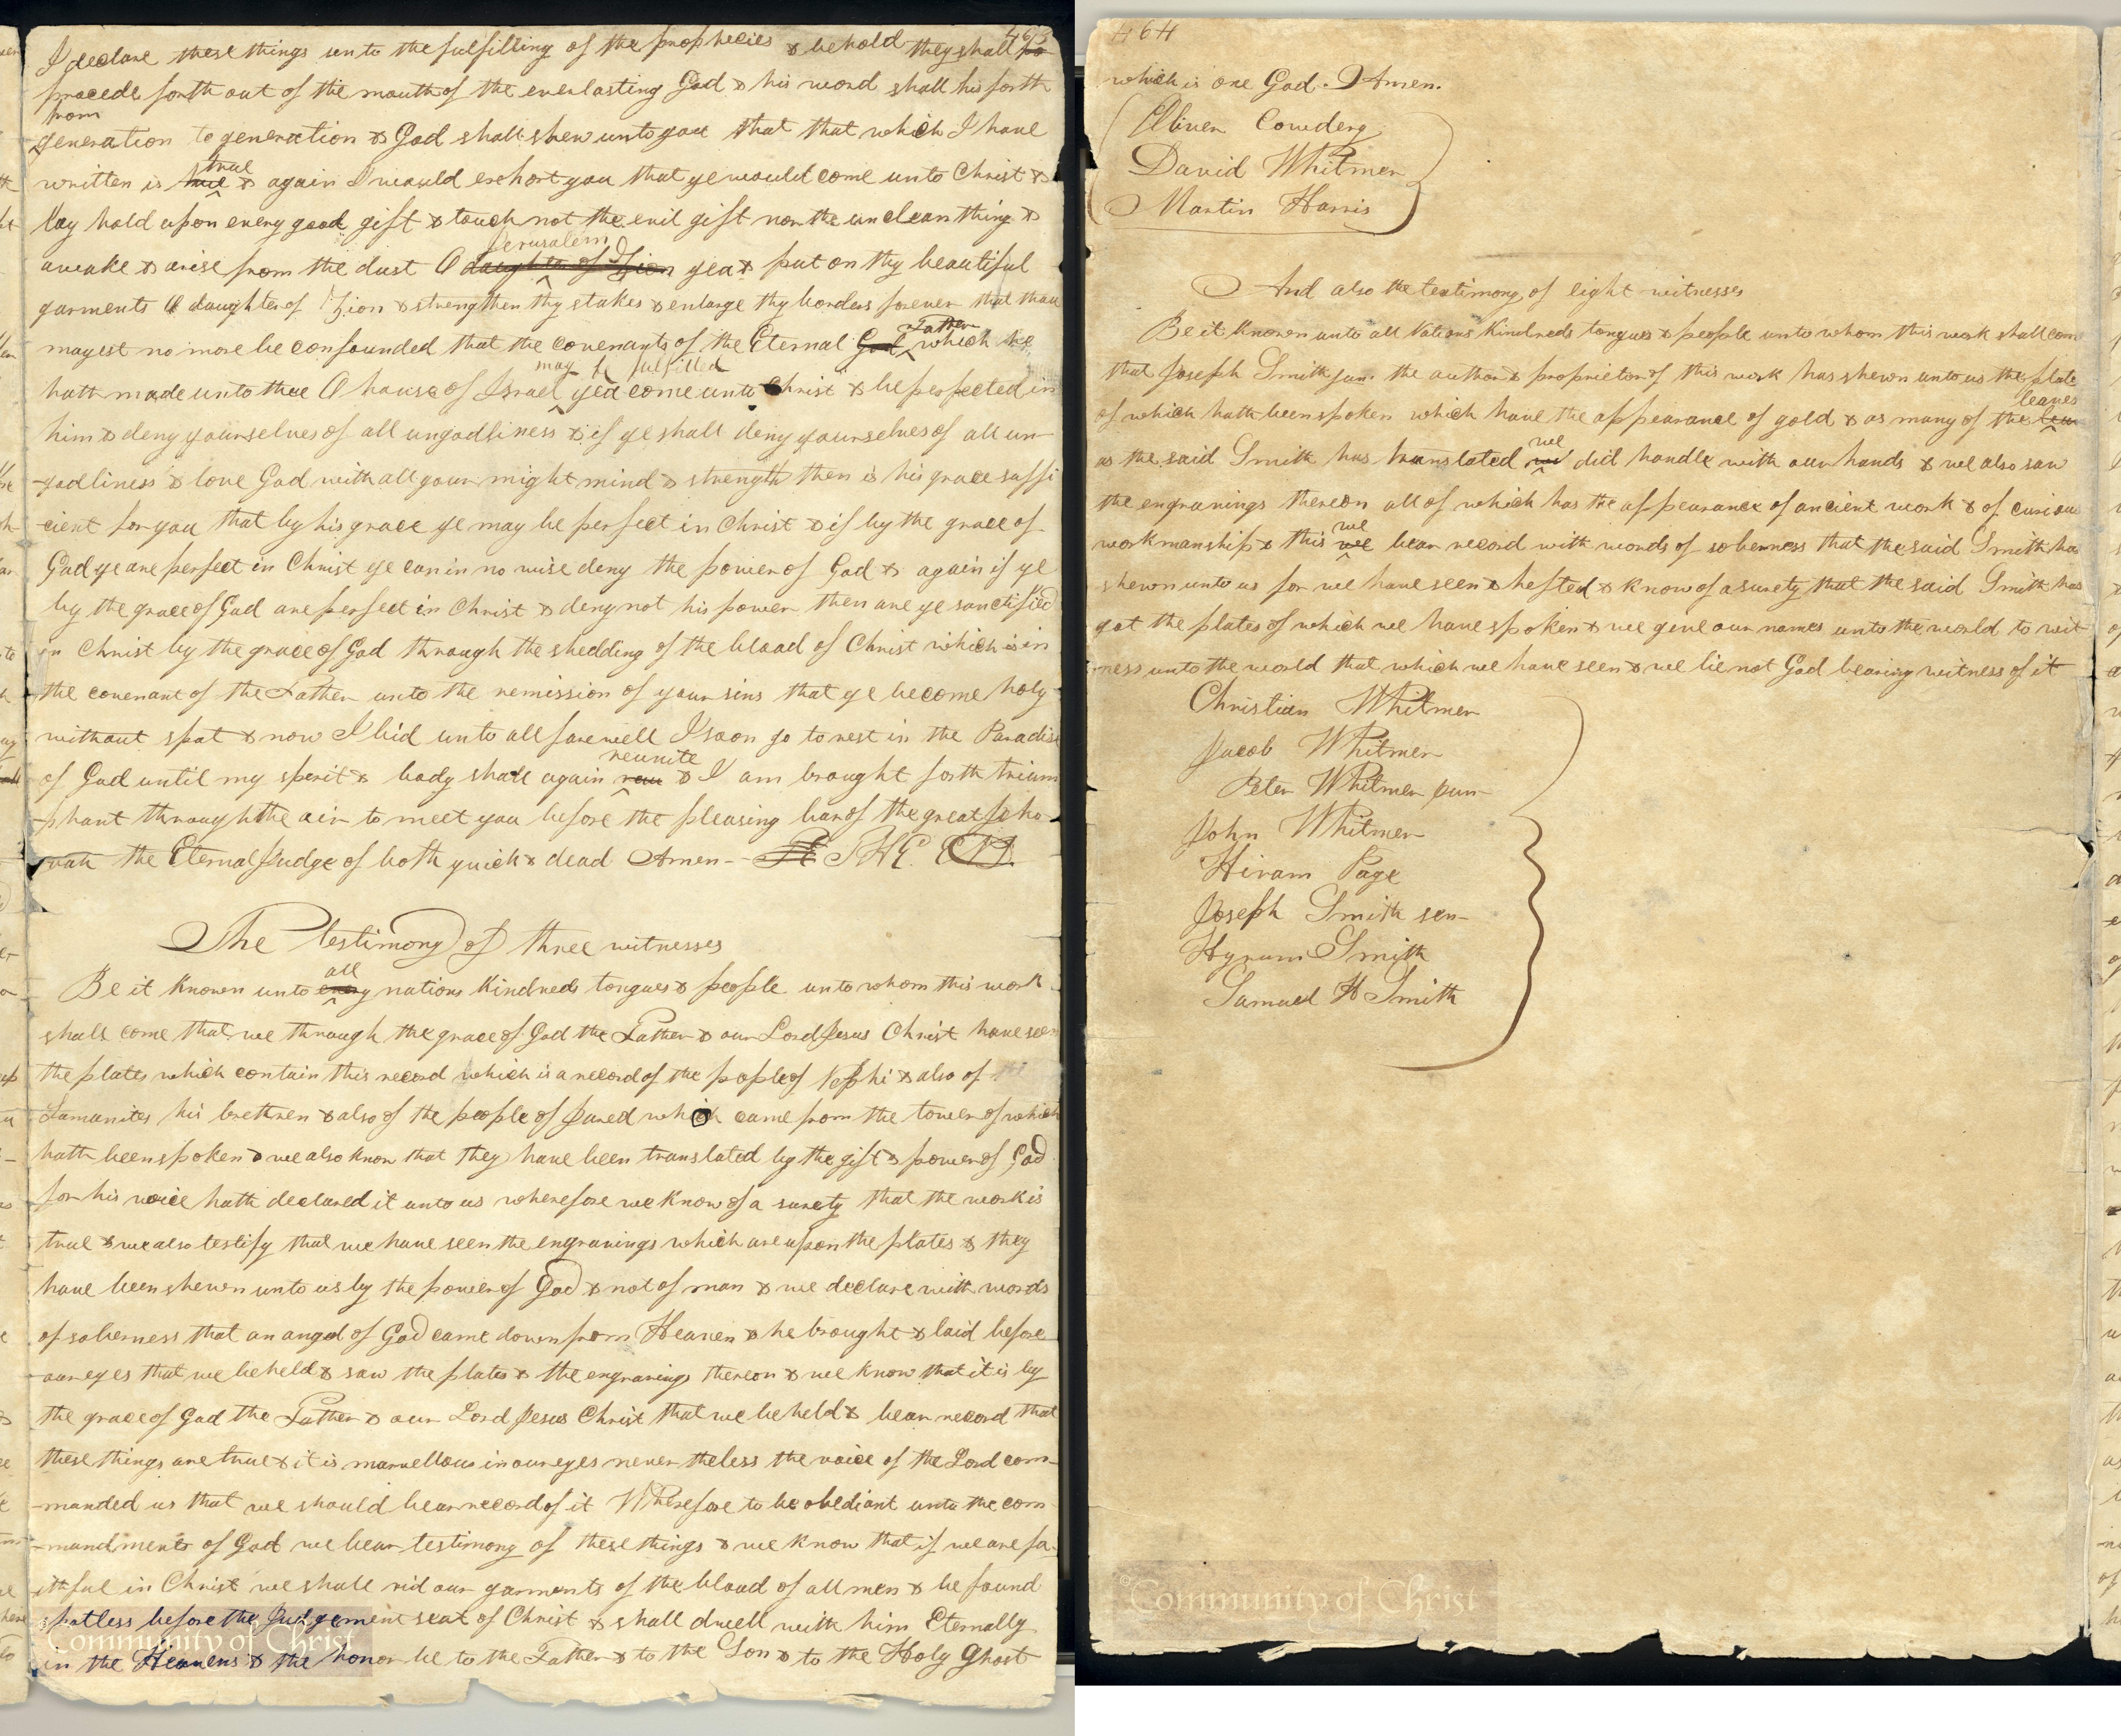 463
I declare these things unto the fulfilling of the prophecies & behold they shall po
procede forth out of the mouth of the everlasting God & his word shall his forth
from
generation to generation & God shall shew unto you that that which I have
true
written is true & again I would exhort you that ye would come unto Christ &
lay hold upon every good gift & touch not the evil gift nor the unclean thing &
Jerusalem
awake & arise from the dust O daughter of Zion yea & put on thy beautiful
garments O daughter of Zion & strengthen thy stakes & enlarge thy borders forever that thou
Father
mayest no more be confounded that the covenants of the Eternal God which he
may be fulfilled
hath made unto thee O house of Israel yea come unto Christ & be perfected in
him & deny yourselves of all ungodliness & if ye shall deny yourselves of all un-
-godliness & love God with all your might mind & strength then is his grace suffi
-cient for you that by his grace ye may be perfect in Christ & if by the grace of
God ye are perfect in Christ ye can in no wise deny the power of God & again if ye
by the grace of God are perfect in Christ & deny not his power then are ye sanctified
in Christ by the grace of God through the shedding of the blood of Christ which is in
the covenant of the Father unto the remission of your sins that ye become holy
without spot & now I bid unto all farewell I soon go to rest in the Paradise
reunite
of God until my sperit & body shall again & I am brought forth trium
-phant through the air to meet you before the pleasing bar of the great Jeho
-vah the Eternal Judge of both quick & dead Amen--
The testimony of three witnesses
all
Be it known unto every nations kindreds tongues & people unto whom this work
shall come that we through the grace of God the Father & our Lord Jesus Christ have seen
the plates which contain this record which is a record of the pople of Nephi & also of
Lamanites his brethren & also of the people of Jared which came from the tower of which
hath been spoken & we also know that they have been translated by the gift & power of God
for his voice hath declared it unto us wherefore we know of a surety that the work is
true & we also testify that we have seen the engravings which are upon the plates & they
have been shewn unto us by the power of God & not of man & we declare with words
of soberness that an angel of God came down from Heaven & he brought & laid before
our eyes that we beheld & saw the plates & the engravings thereon & we know that it is by
the grace of God the Father & our Lord Jesus Christ that we beheld & bear record that
these things are true & it is marvellous in our eyes never theless the voice of the Lord com-
-manded us that we should bear record of it Wherefore to be obediant unto the com
-mandments of God we bear testimony of these things & we know that if we are fa-
ithful in Christ we shall rid our garments of the blood of all men & be found
spotless before the Judgement seat of Christ & shall dwell with him Eternally
in the Heavens & the honor be to the Father & to the Son & to the Holy Ghost
Community of Christ
464
which is one God. Amen.
Oliver Cowdery
David Whitmer
Martin Harris
And also the testimony of eight witnesses
Be it known unto all Nations Kindreds tongues & people unto whom this work shall com
that Joseph Smith jun. the author & proprietor of this work has shewn unto us the plate
leaves
of which hath been spoken which have the appearance of gold & as many of the
we
as the said Smith has translated did handle with our hands & we also saw
the engravings thereon all of which has the appearance of ancient work & of curious
we
workmanship & this we bear record with words of soberness that the said Smith has
shewn unto us for we have seen & hefted & know of a surety that the said Smith has
got the plates of which we have spoken & we give our names unto the world to wit
-ness unto the world that which we have seen & we lie not God bearing witness of it
Christian Whitmer
Jacob Whitmer
Peter Whitmer jun-
John Whitmer
Hiram Page
Joseph Smith sen-
Hyrum Smith
Samuel H Smith
Community of Christ